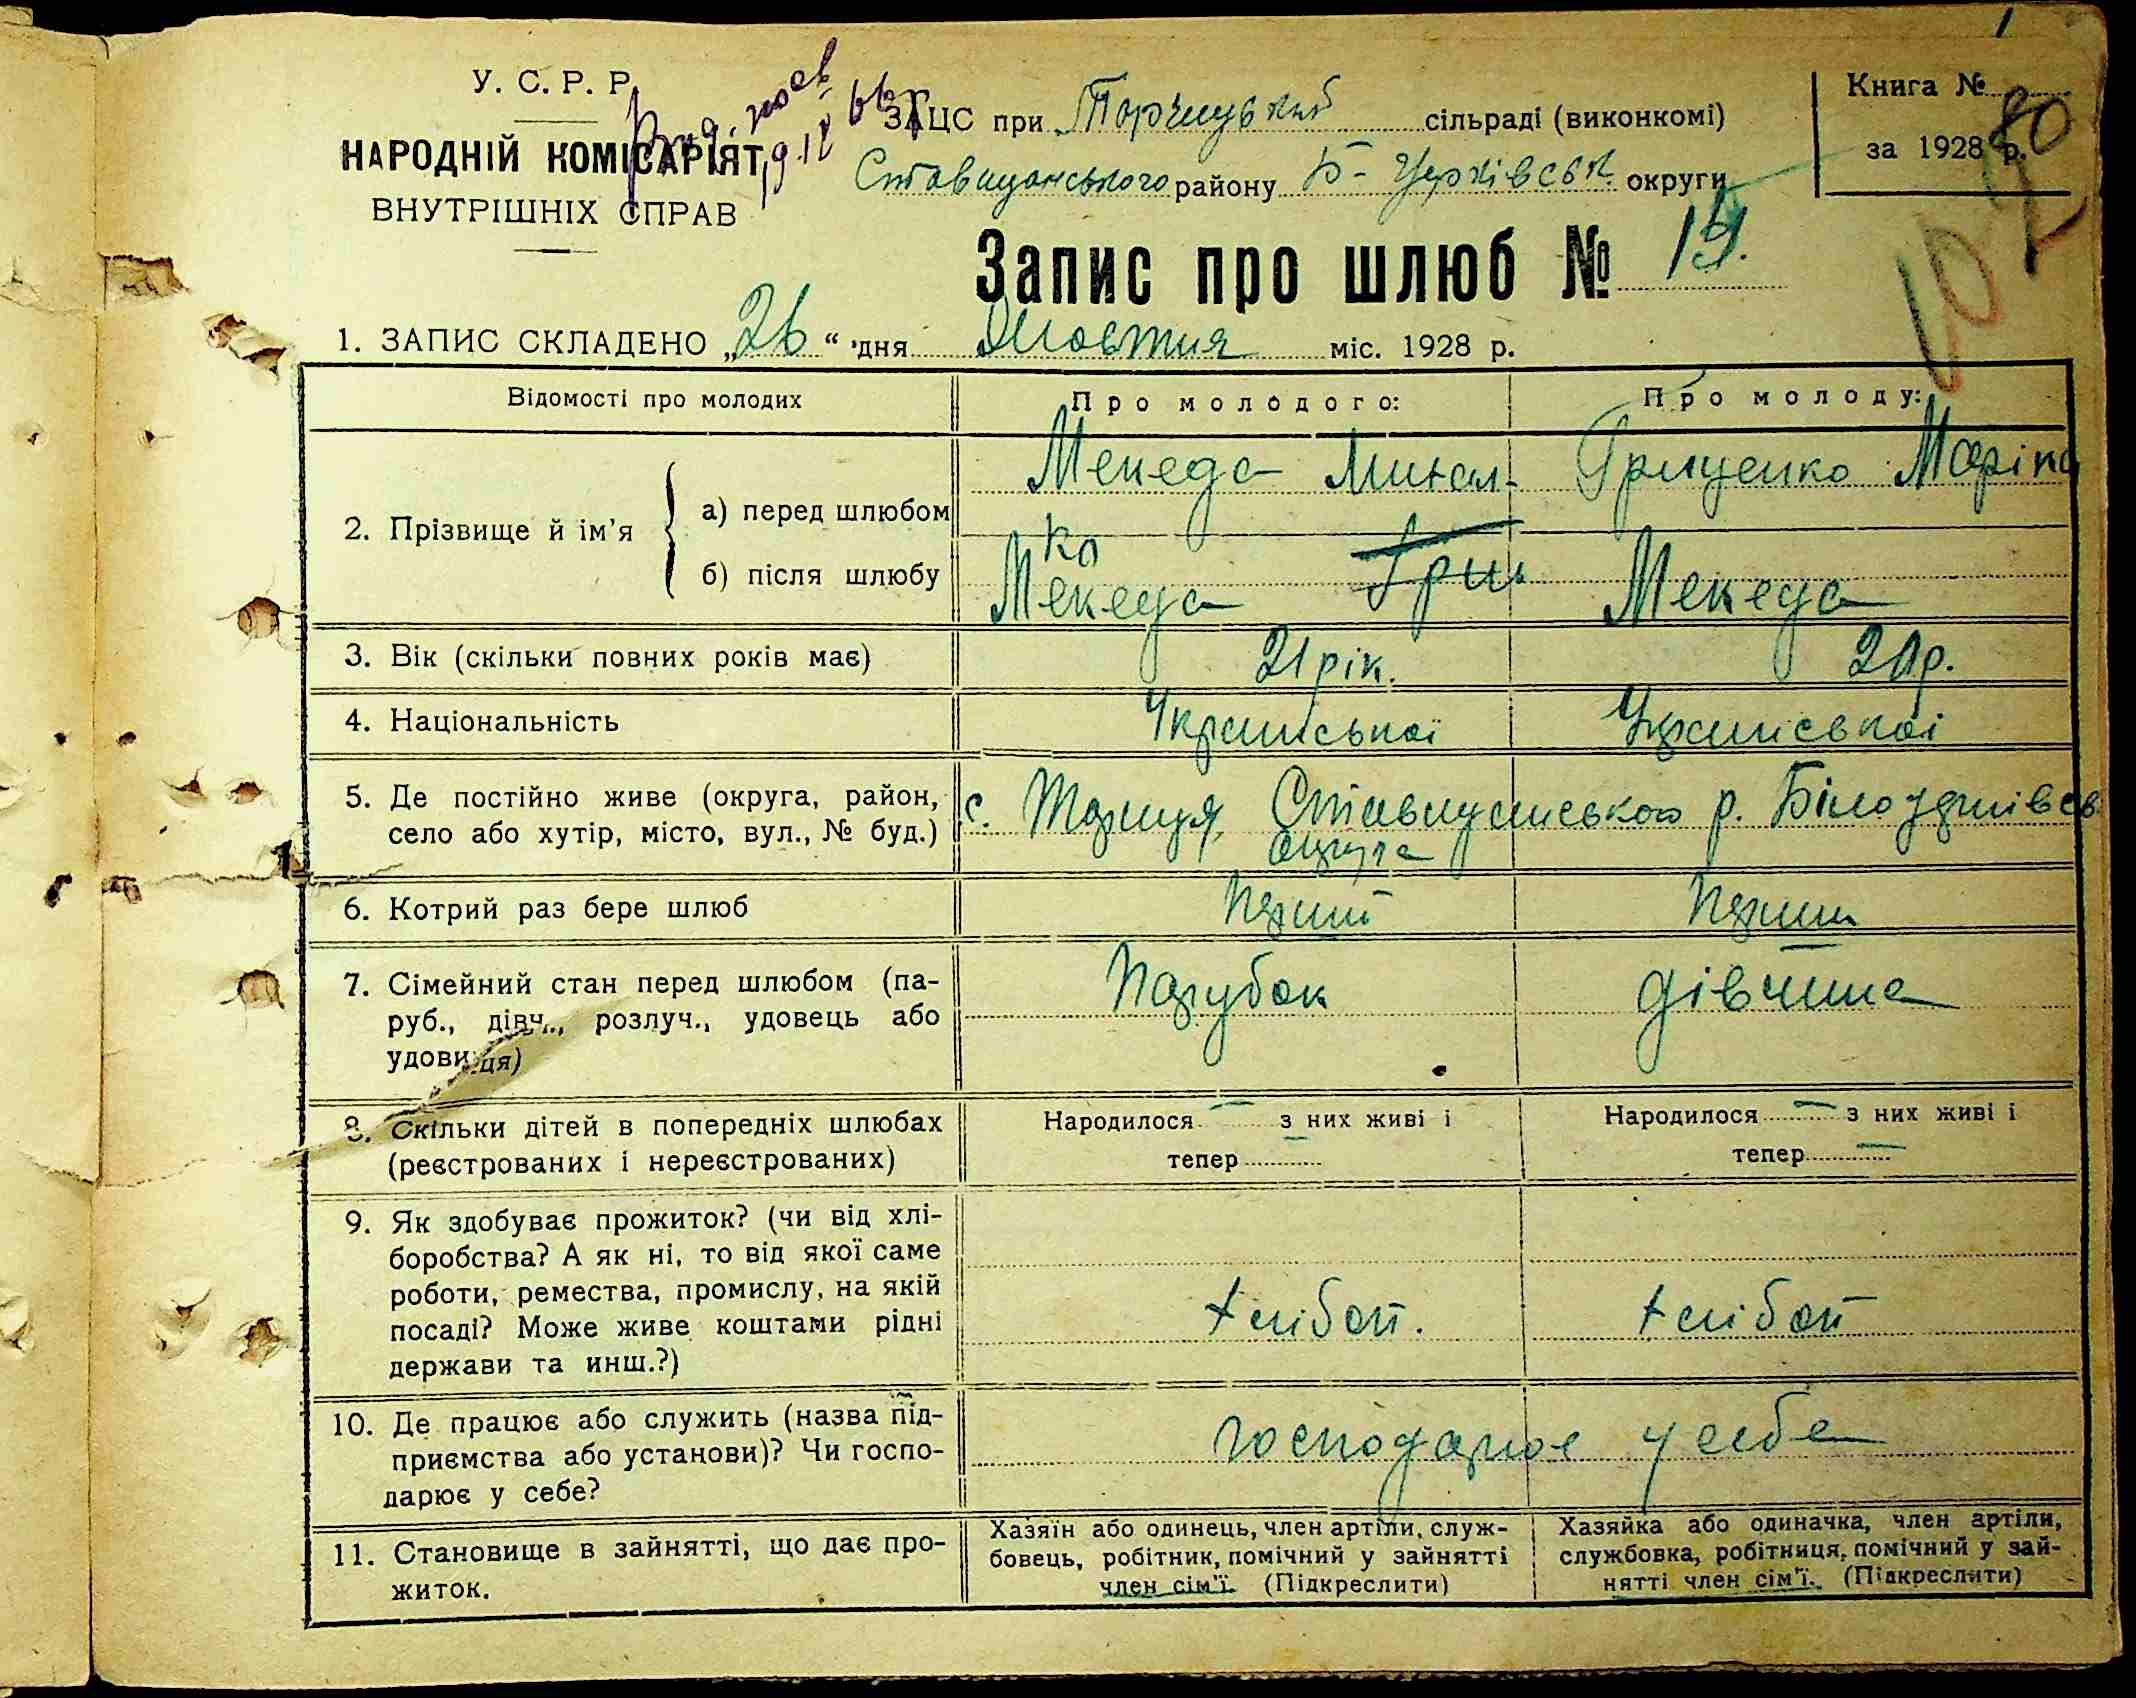 У. С. Р. Р.
НАРОДНІЙ КОМІСАРІЯТ
ВНУТРІШНІХ СПРАВ
ЗАЦС при сільраді (виконкомі)
Ставищанського району Б-Церківськ. округи
Книга №
за 1928 р.
80
Запис про шлюб № 19.
1. ЗАПИС СКЛАДЕНО „26“ дня Жовтня міс. 1928 р.
Відомості про молодих
Про молодого:
Про молоду:
2. Прізвище й ім'я
а) перед шлюбом
Мекеда Михал-
ко
Гриценко Маріка
б) після шлюбу
Мекеда Гриц
Мекеда
3. Вік (скільки повних років має)
21 рік.
20 р.
4. Національність
Української
Української
5. Де постійно живе (округа, район,
село або хутір, місто, вул., № буд.)
с. Ставищанського р. Білоцерківсь
округа
6. Котрий раз бере шлюб
Перший
Перший
7. Сімейний стан перед шлюбом (па-
руб., дівч., розлуч., удовець або
удовиця)
Парубок
дівчина
8. Скільки дітей в попередніх шлюбах
(реєстрованих і нереєстрованих)
Народилося — з них живі і
тепер —
Народилося — з них живі і
тепер —
9. Як здобуває прожиток? (чи від хлі-
боробства? А як ні, то від якої саме
роботи, ремества, промислу, на якій
посаді? Може живе коштами рідні
держави та инш.?)
хлібоп.
хлібоп
10. Де працює або служить (назва під-
приємства або установи)? Чи госпо-
дарює у себе?
господарює у себе
11. Становище в зайнятті, що дає про-
житок.
Хазяїн або одинець, член артіли, служ-
бовець, робітник, помічний у зайнятті
член сім'ї. (Підкреслити)
Хазяйка або одиначка, член артіли,
службовка, робітниця, помічний у зай-
нятті член сім'ї. (Підкреслити)